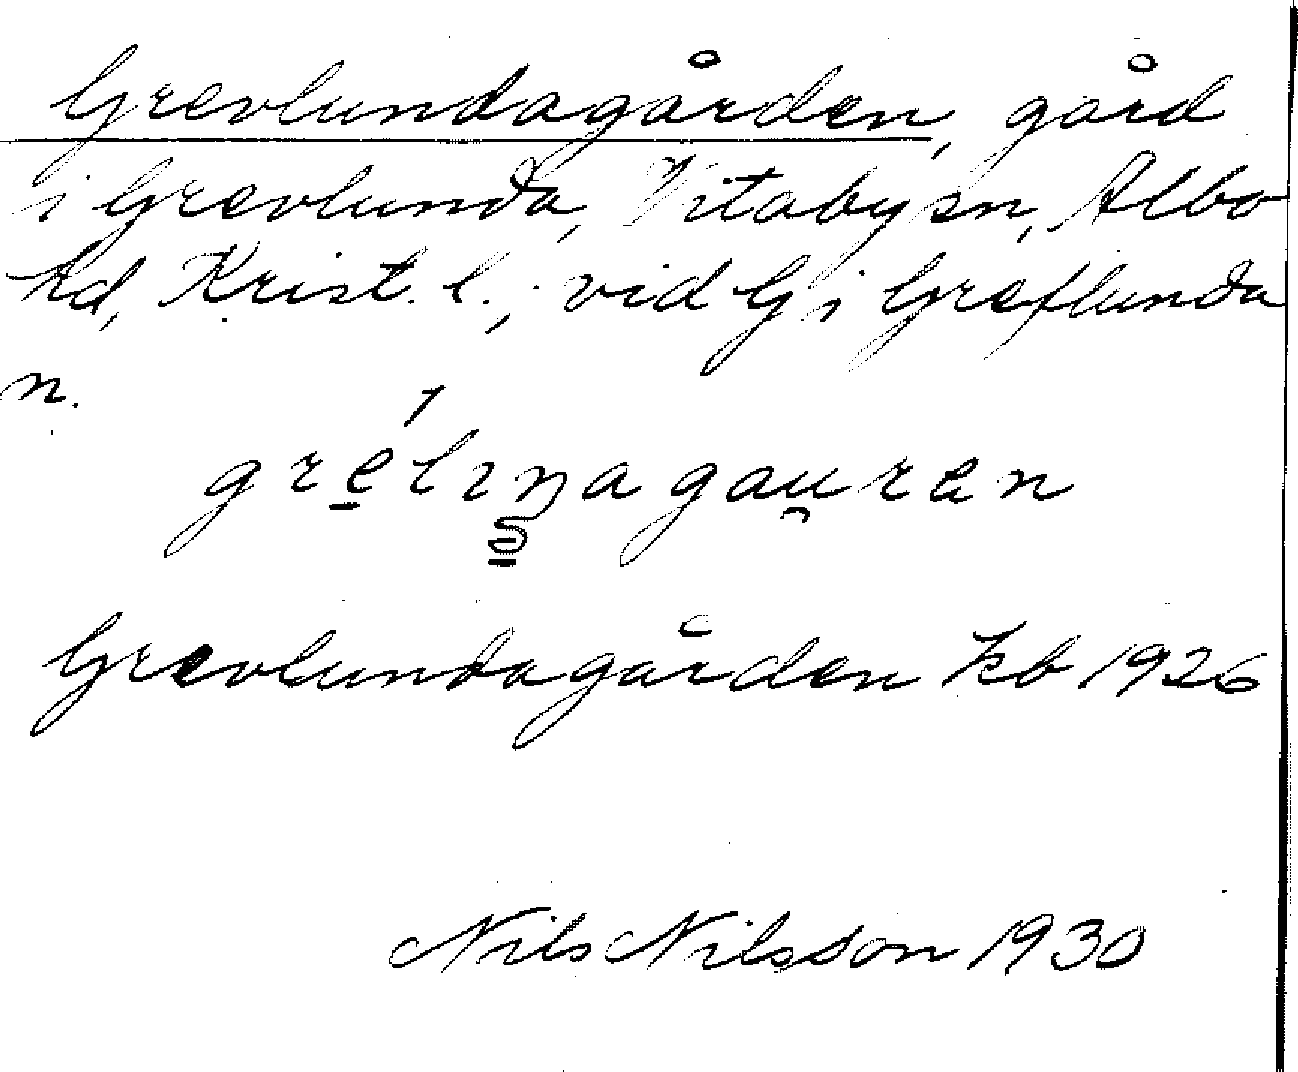 Grevlundagården, gård
i Grevlunda, Vitaby sn, Albo
hd, Krist. l.; vid G i Greflunda
n.
gre̱ĺıṉagau̯ren
Grevlundagården kb 1926
Nils Nilsson 1930